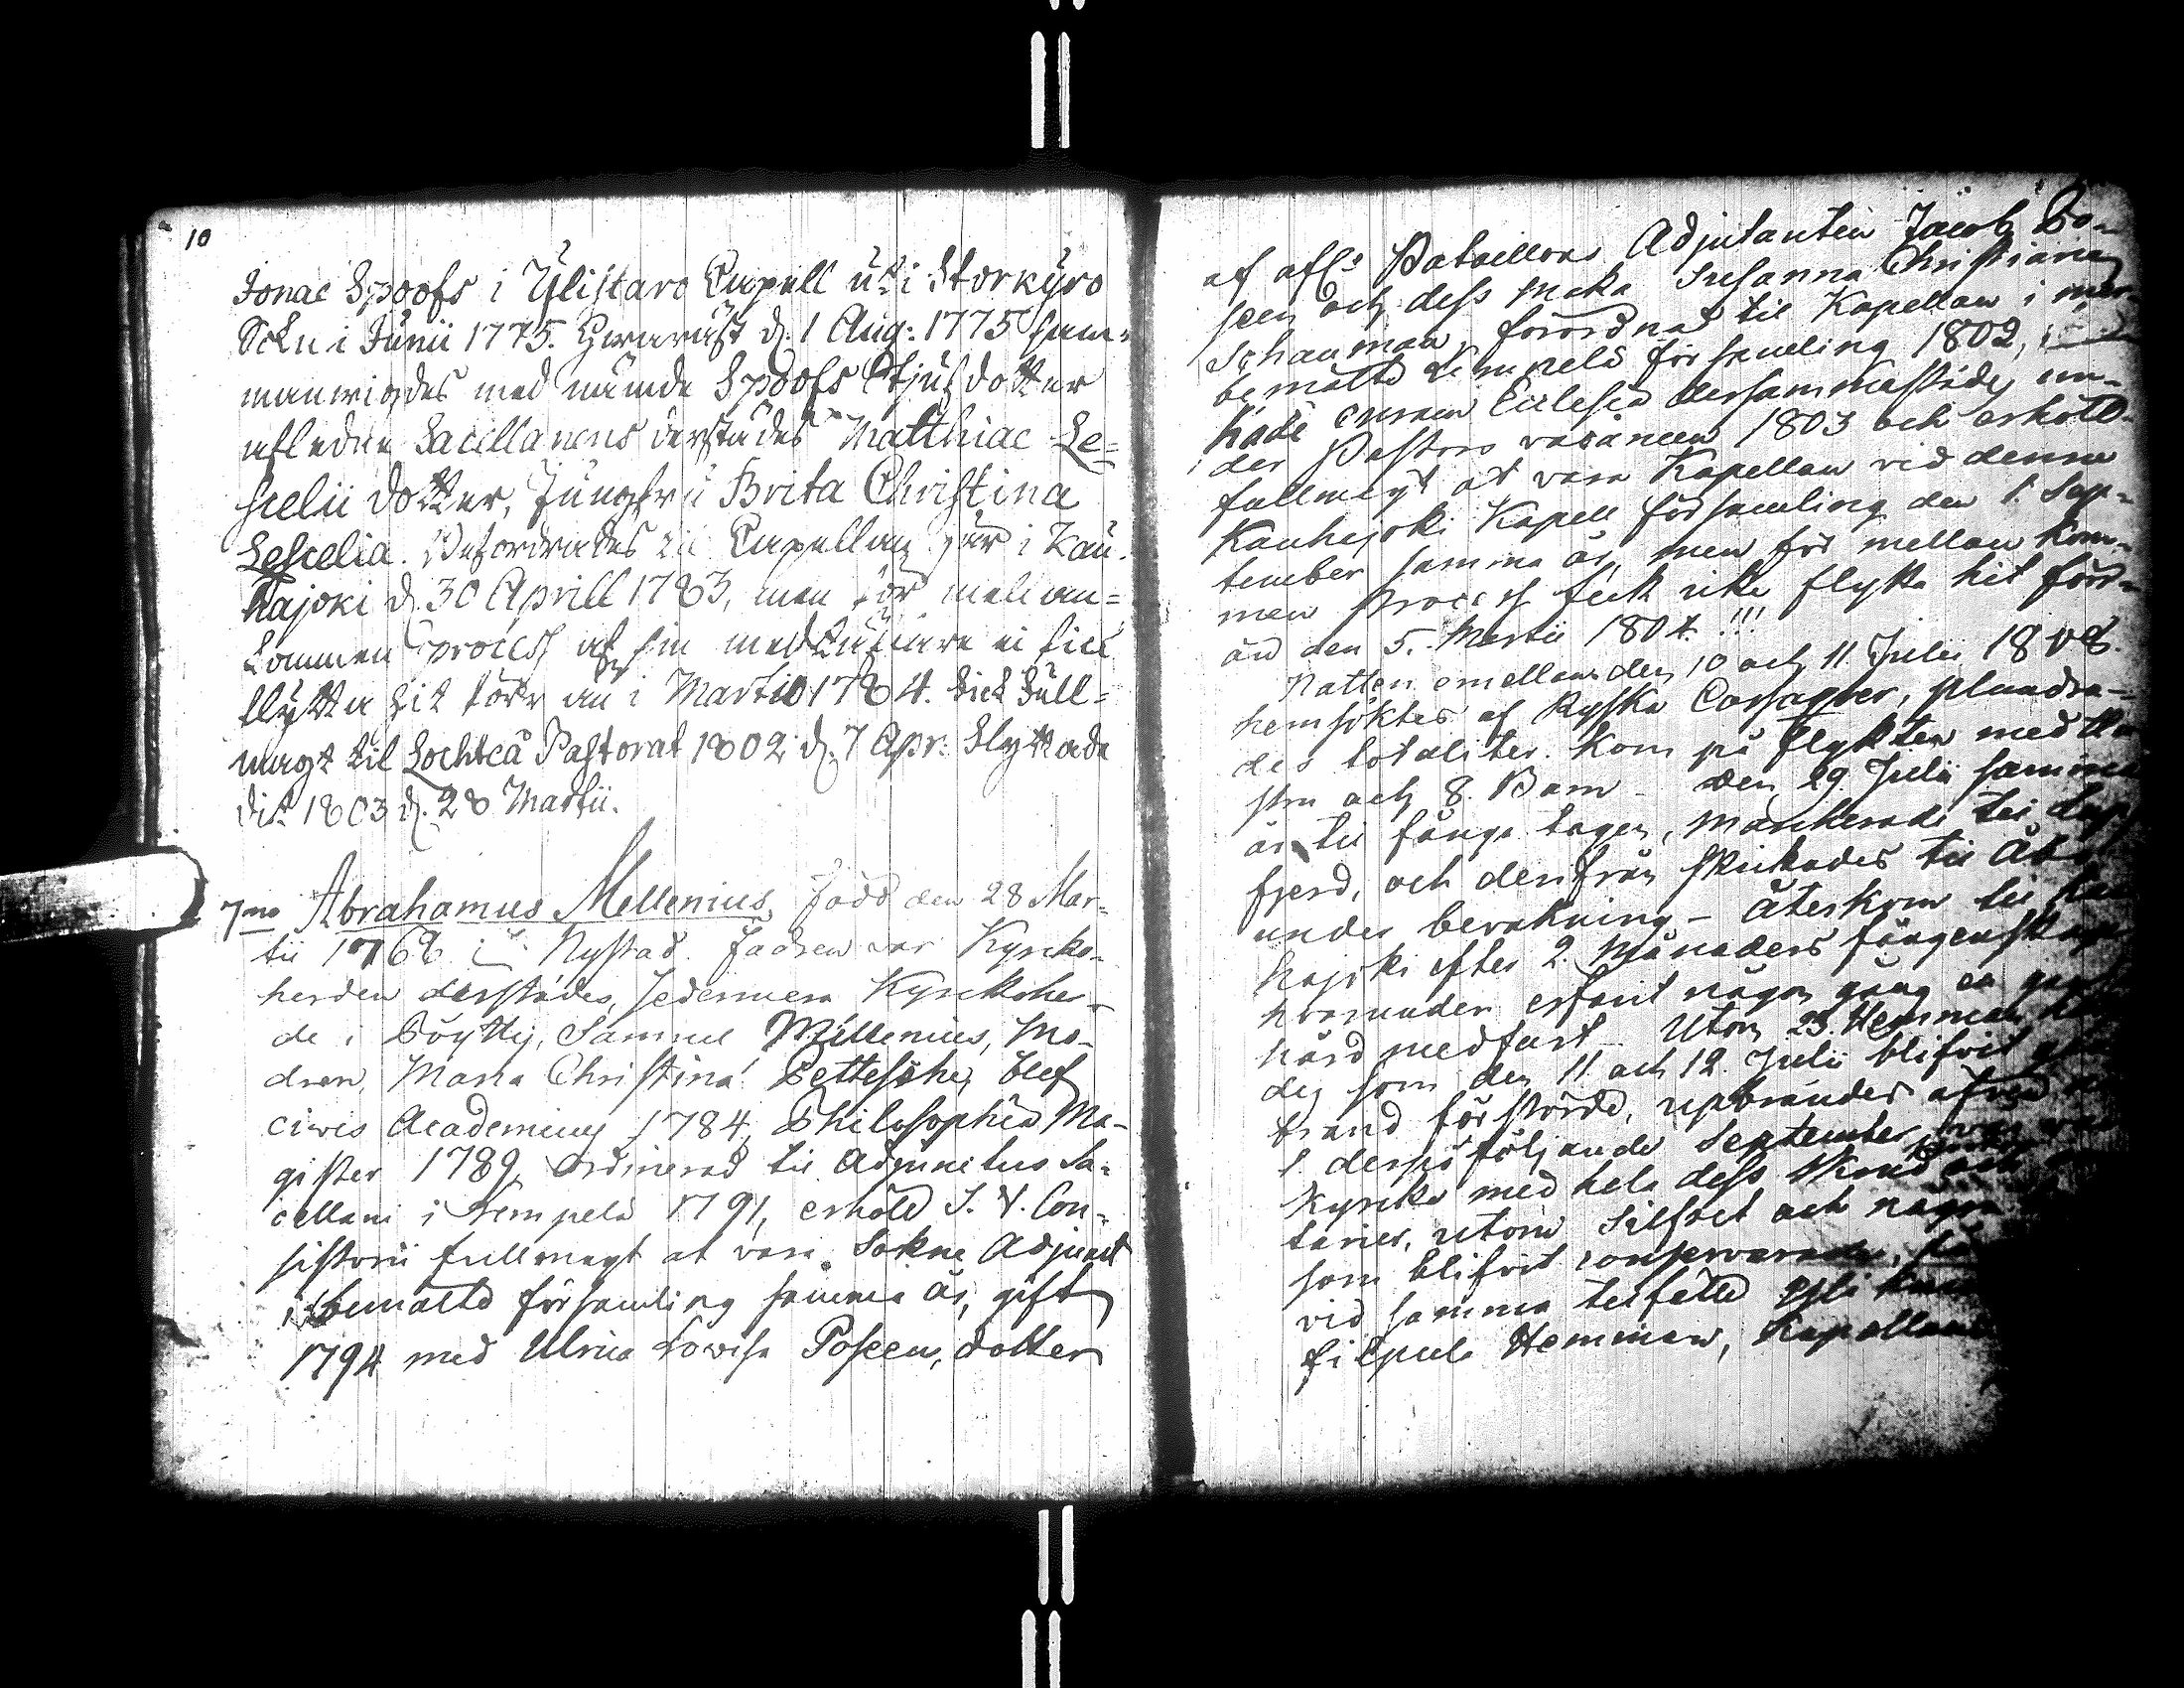 10
Jonae Spoofs i Ylistaro Capell uti Storkyro
Sokn i Junii 1775. d. 1 Aug: 1775 sam-
manwigdes med nämde Spoofs Styfdotter
afledne Sacellanens derstädes Matthiae Le=
scelii dotter, Jungfru Brita Christina
Lescelia. Befordrades til Capellan här i Kau-
hajoki d. 30 Aprill 1783, men för mellan=
kommen process af sin medsökiare ei fick
flytta hit förr än i Martio 1784. Fick Full=
magt til Lochteå Pastorat 1802 d. 7 Apr: Flyttade
dit 1803 d. 28 Martii.
7mo Abrahamus Mellenius, Född den 28 Mar-
tii 1766 i Nystad. Fadren var Kyrcko-
herden derstädes, sedermera Kyrckoher-
de i Pöyttis, Samuel Mellenius, Mo-
dren, Maria Christina Pettesche, blef
civis Academicus 1784, Philosophiæ Ma-
gister 1789, Ordinerad til Adjunctus Sa-
cellani i Kempelä 1791, erhöld S. V. Con-
sistorii fullmagt at vara Sokne Adjunct
i bemälte församling samma år, gift
1794 med Ulrica Lovisa Poseen, dotter
af afl:s Bataillons Adjutanten Jacob Po-
seen och dess maka Susanna Christiana
Schauman, förordnad til Kapellan i mer-
bemälte Kempelä församling 1802,
hade curam Ecclesiæ dersammastädes un-
der Pastors vacancen 1803 och erhöll
fullmagt at vara Kapellan vid denna
Kauhajoki Kapell församling den 1. Sep-
tember samma år, men för mellan kom-
men Process fick icke flytta hit förr-
än den 5. Martii 1804.!!!
Natten emellan den 10 och 11 Julii 1808.
hemsöktes af Ryska Cossaquer, plundra-
des totaliter. Kom på flykten med
och 8. Barn – den 29. Julii samma
år til fånga tagen, marcherade til Lap
fjerd, och derifrån skickades til Åbo
under bevakning – återkom til Kau
hajoki efter 2. Månaders fångenskap
hvarunder erfarit någon gång en
hård medfart. Utom 23. Hemman
des som den 11 och 12. Julii blifvit
brand förstörde, upbrändes äfven
1 derpå följande September
Kyrcka med hela dess skrud och
tarier, utom silfvret och någon
som blifvit conserverade,
vid samma tilfälle
filpula Hemman, Kapellans